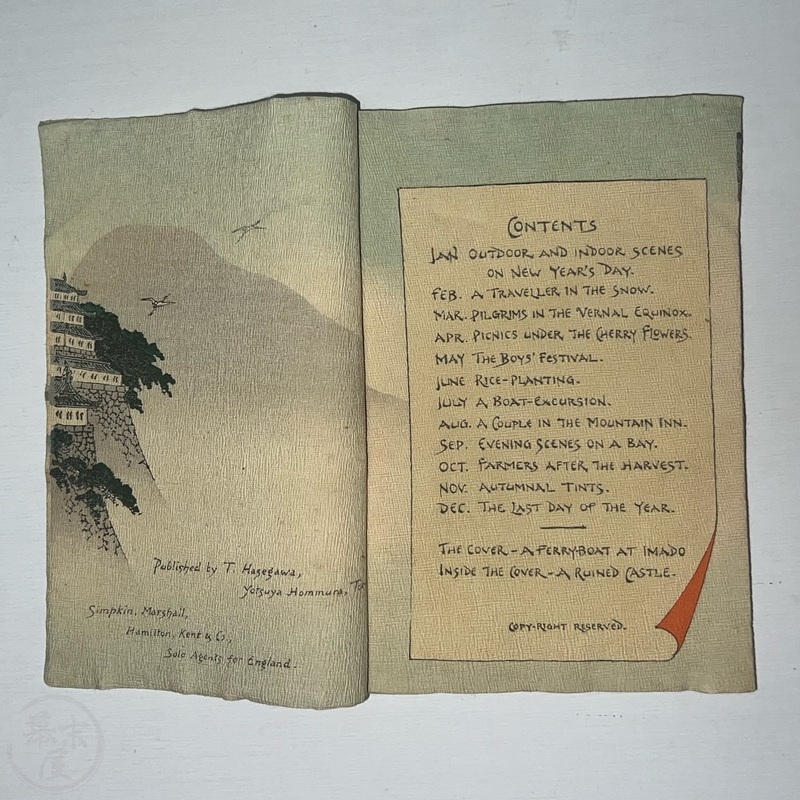 Published by T. Hasegawa,
Yotsuya Hommura,
Simpkin, Marshall,
Hamilton, Kent & Co,
Sole Agents for England.
CONTENTS
JAN OUTDOOR AND INDOOR SCENES
ON NEW YEAR'S DAY.
FEB. A TRAVELLER IN THE SNOW.
MAR. PILGRIMS IN THE VERNAL EQUINOX.
APR. PICNICS UNDER THE CHERRY FLOWERS.
MAY THE BOYS' FESTIVAL.
JUNE RICE-PLANTING.
JULY A BOAT-EXCURSION.
AUG. A COUPLE IN THE MOUNTAIN INN.
SEP. EVENING SCENES ON A BAY.
OCT. FARMERS AFTER THE HARVEST.
NOV. AUTUMNAL TINTS.
DEC. THE LAST DAY OF THE YEAR.
THE COVER – A FERRY-BOAT AT IMADO
INSIDE THE COVER – A RUINED CASTLE.
COPY-RIGHT RESERVED.